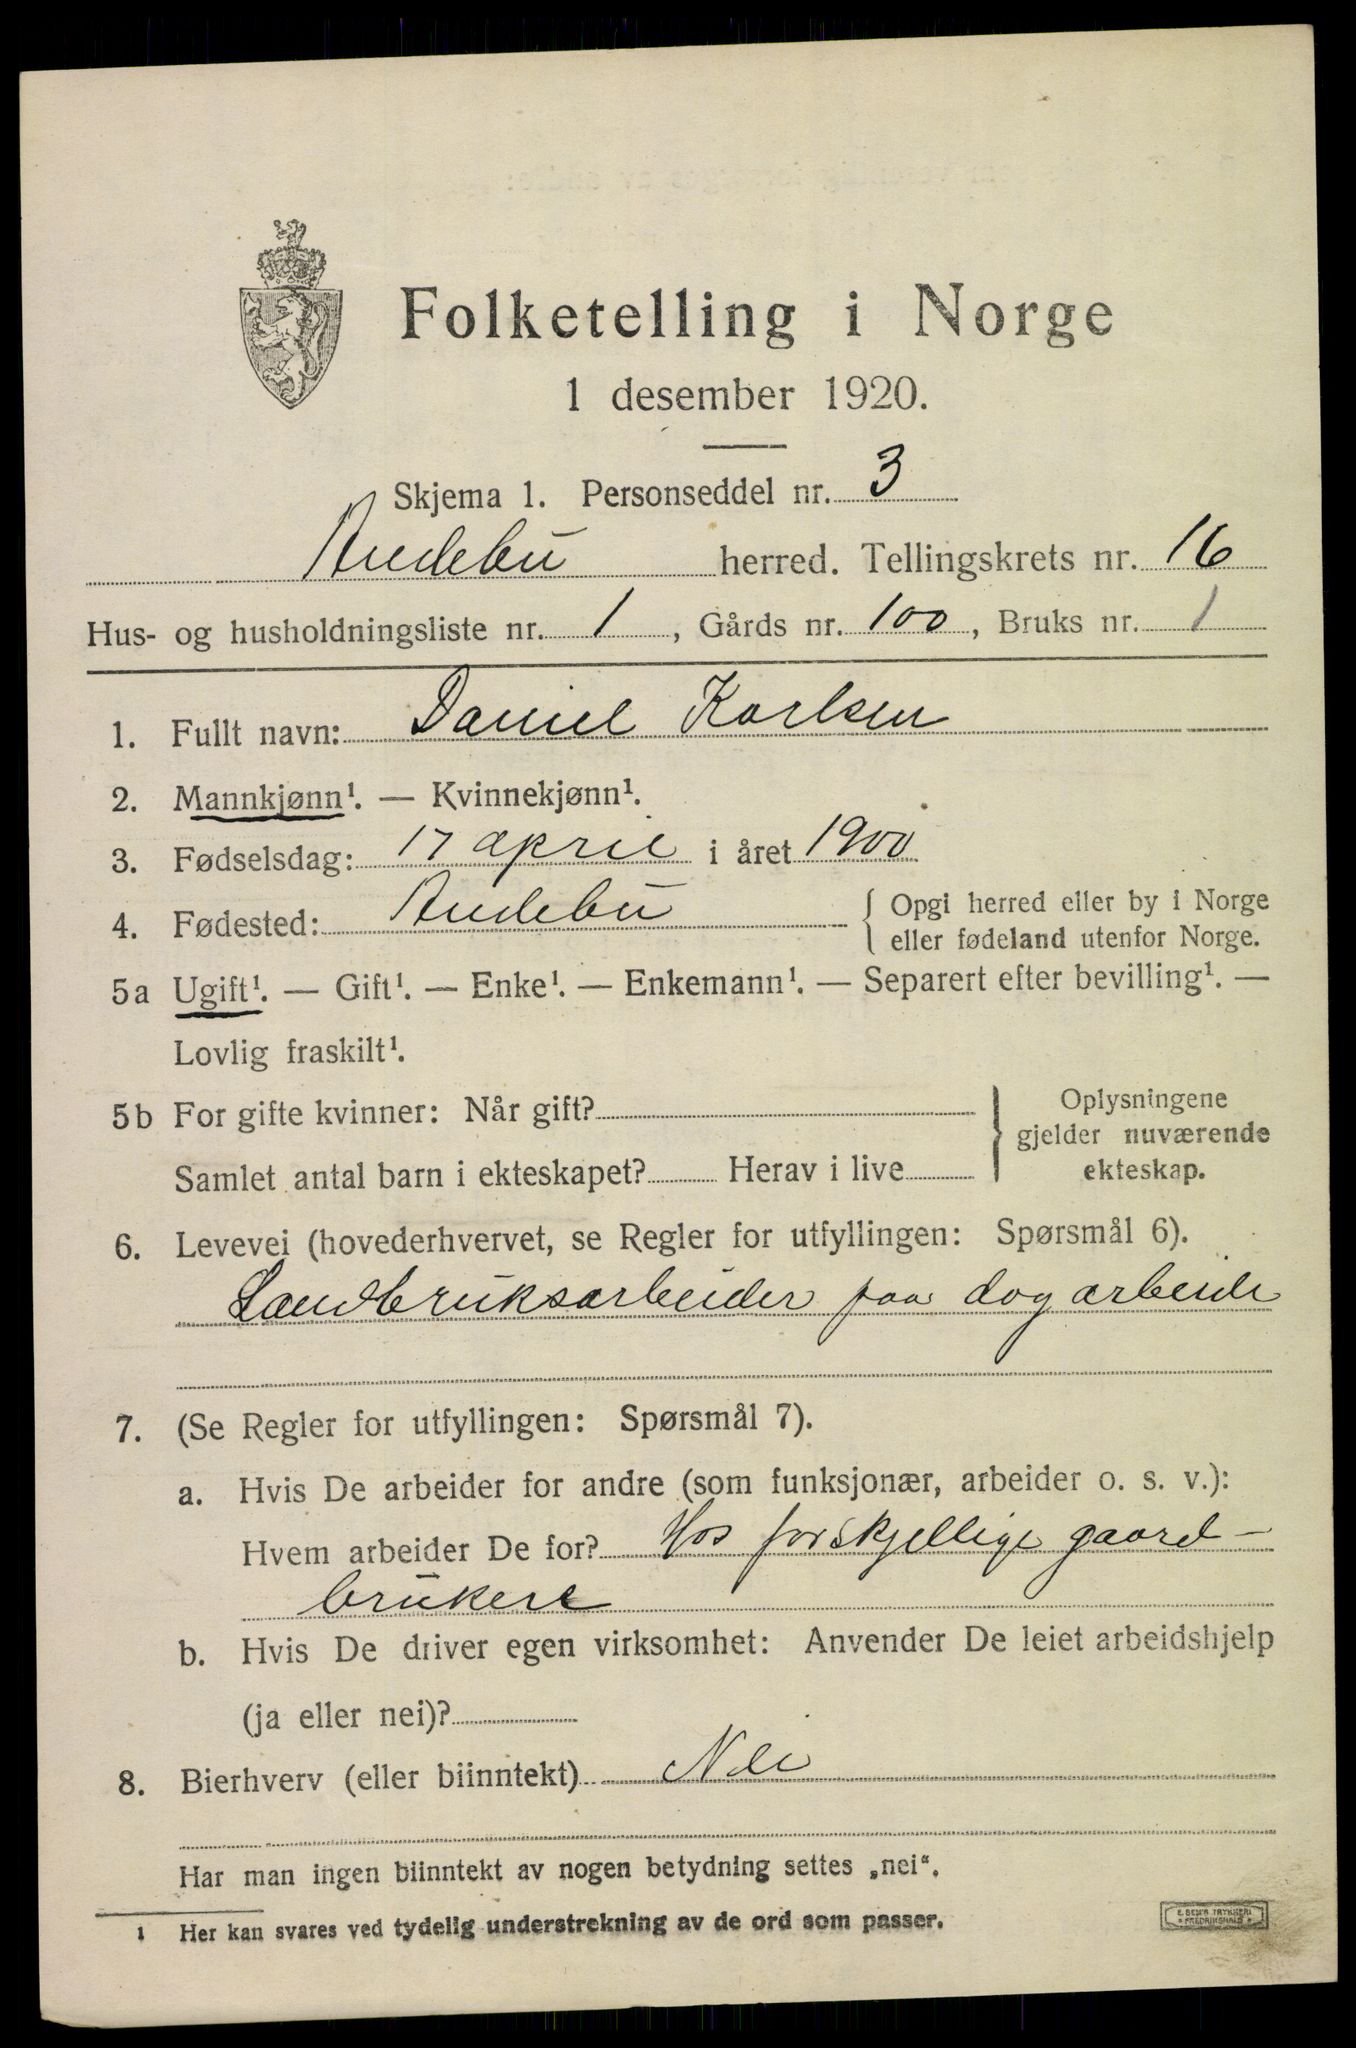 Folketelling i Norge
1 desember 1920.
Skjema 1. Personseddel nr. 3
Andebu herred. Tellingskrets nr. 16
Hus- og husholdningsliste nr. 1, Gårds nr. 100, Bruks nr. 1
1. Fullt navn: Daniel Karlsen
2. Mannkjønn¹. — Kvinnekjønn¹.
3. Fødselsdag: 17 april i året 1900
4. Fødested: Andebu { Opgi herred eller by i Norge
eller fødeland utenfor Norge.
5a Ugift¹. — Gift¹. — Enke¹. — Enkemann¹. — Separert efter bevilling¹. —
Lovlig fraskilt¹.
5b For gifte kvinner: Når gift?
Samlet antal barn i ekteskapet? Herav i live
} Oplysningene
gjelder nuværende
ekteskap.
6. Levevei (hovederhvervet, se Regler for utfyllingen: Spørsmål 6).
Landbruksarbeider paa dagarbeide
7. (Se Regler for utfyllingen: Spørsmål 7).
a. Hvis De arbeider for andre (som funksjonær, arbeider o. s. v.):
Hvem arbeider De for? Hos forskjellige gaard-
brukere
b. Hvis De driver egen virksomhet: Anvender De leiet arbeidshjelp
(ja eller nei)?
8. Bierhverv (eller biinntekt) Nei
Har man ingen biinntekt av nogen betydning settes „nei“.
1 Her kan svares ved tydelig understrekning av de ord som passer.